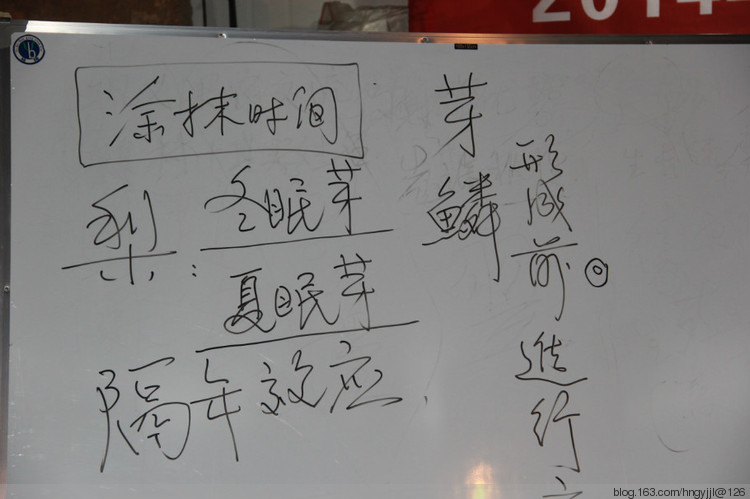 2014
涂抹时间
梨:冬眠芽
夏眠芽
隔年效应.
芽鳞
形成前◎進行
blog.163.com/hngyjjl@126